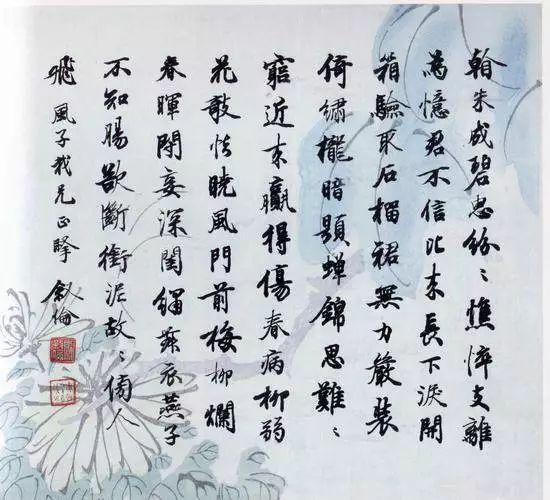 看朱成碧思紛〻憔悴支離
為憶君不信比来長下淚開
箱驗取石榴裙無力嚴裝
倚繡櫳暗題蟬錦思難〻
窮近来羸得傷春病柳弱
花欹怯曉風門前梅柳爛
春暉閉妾深閨繡舞衣燕子
不知腸欲斷銜泥故〻傍人
飛 風子我兄正擘 叙倫